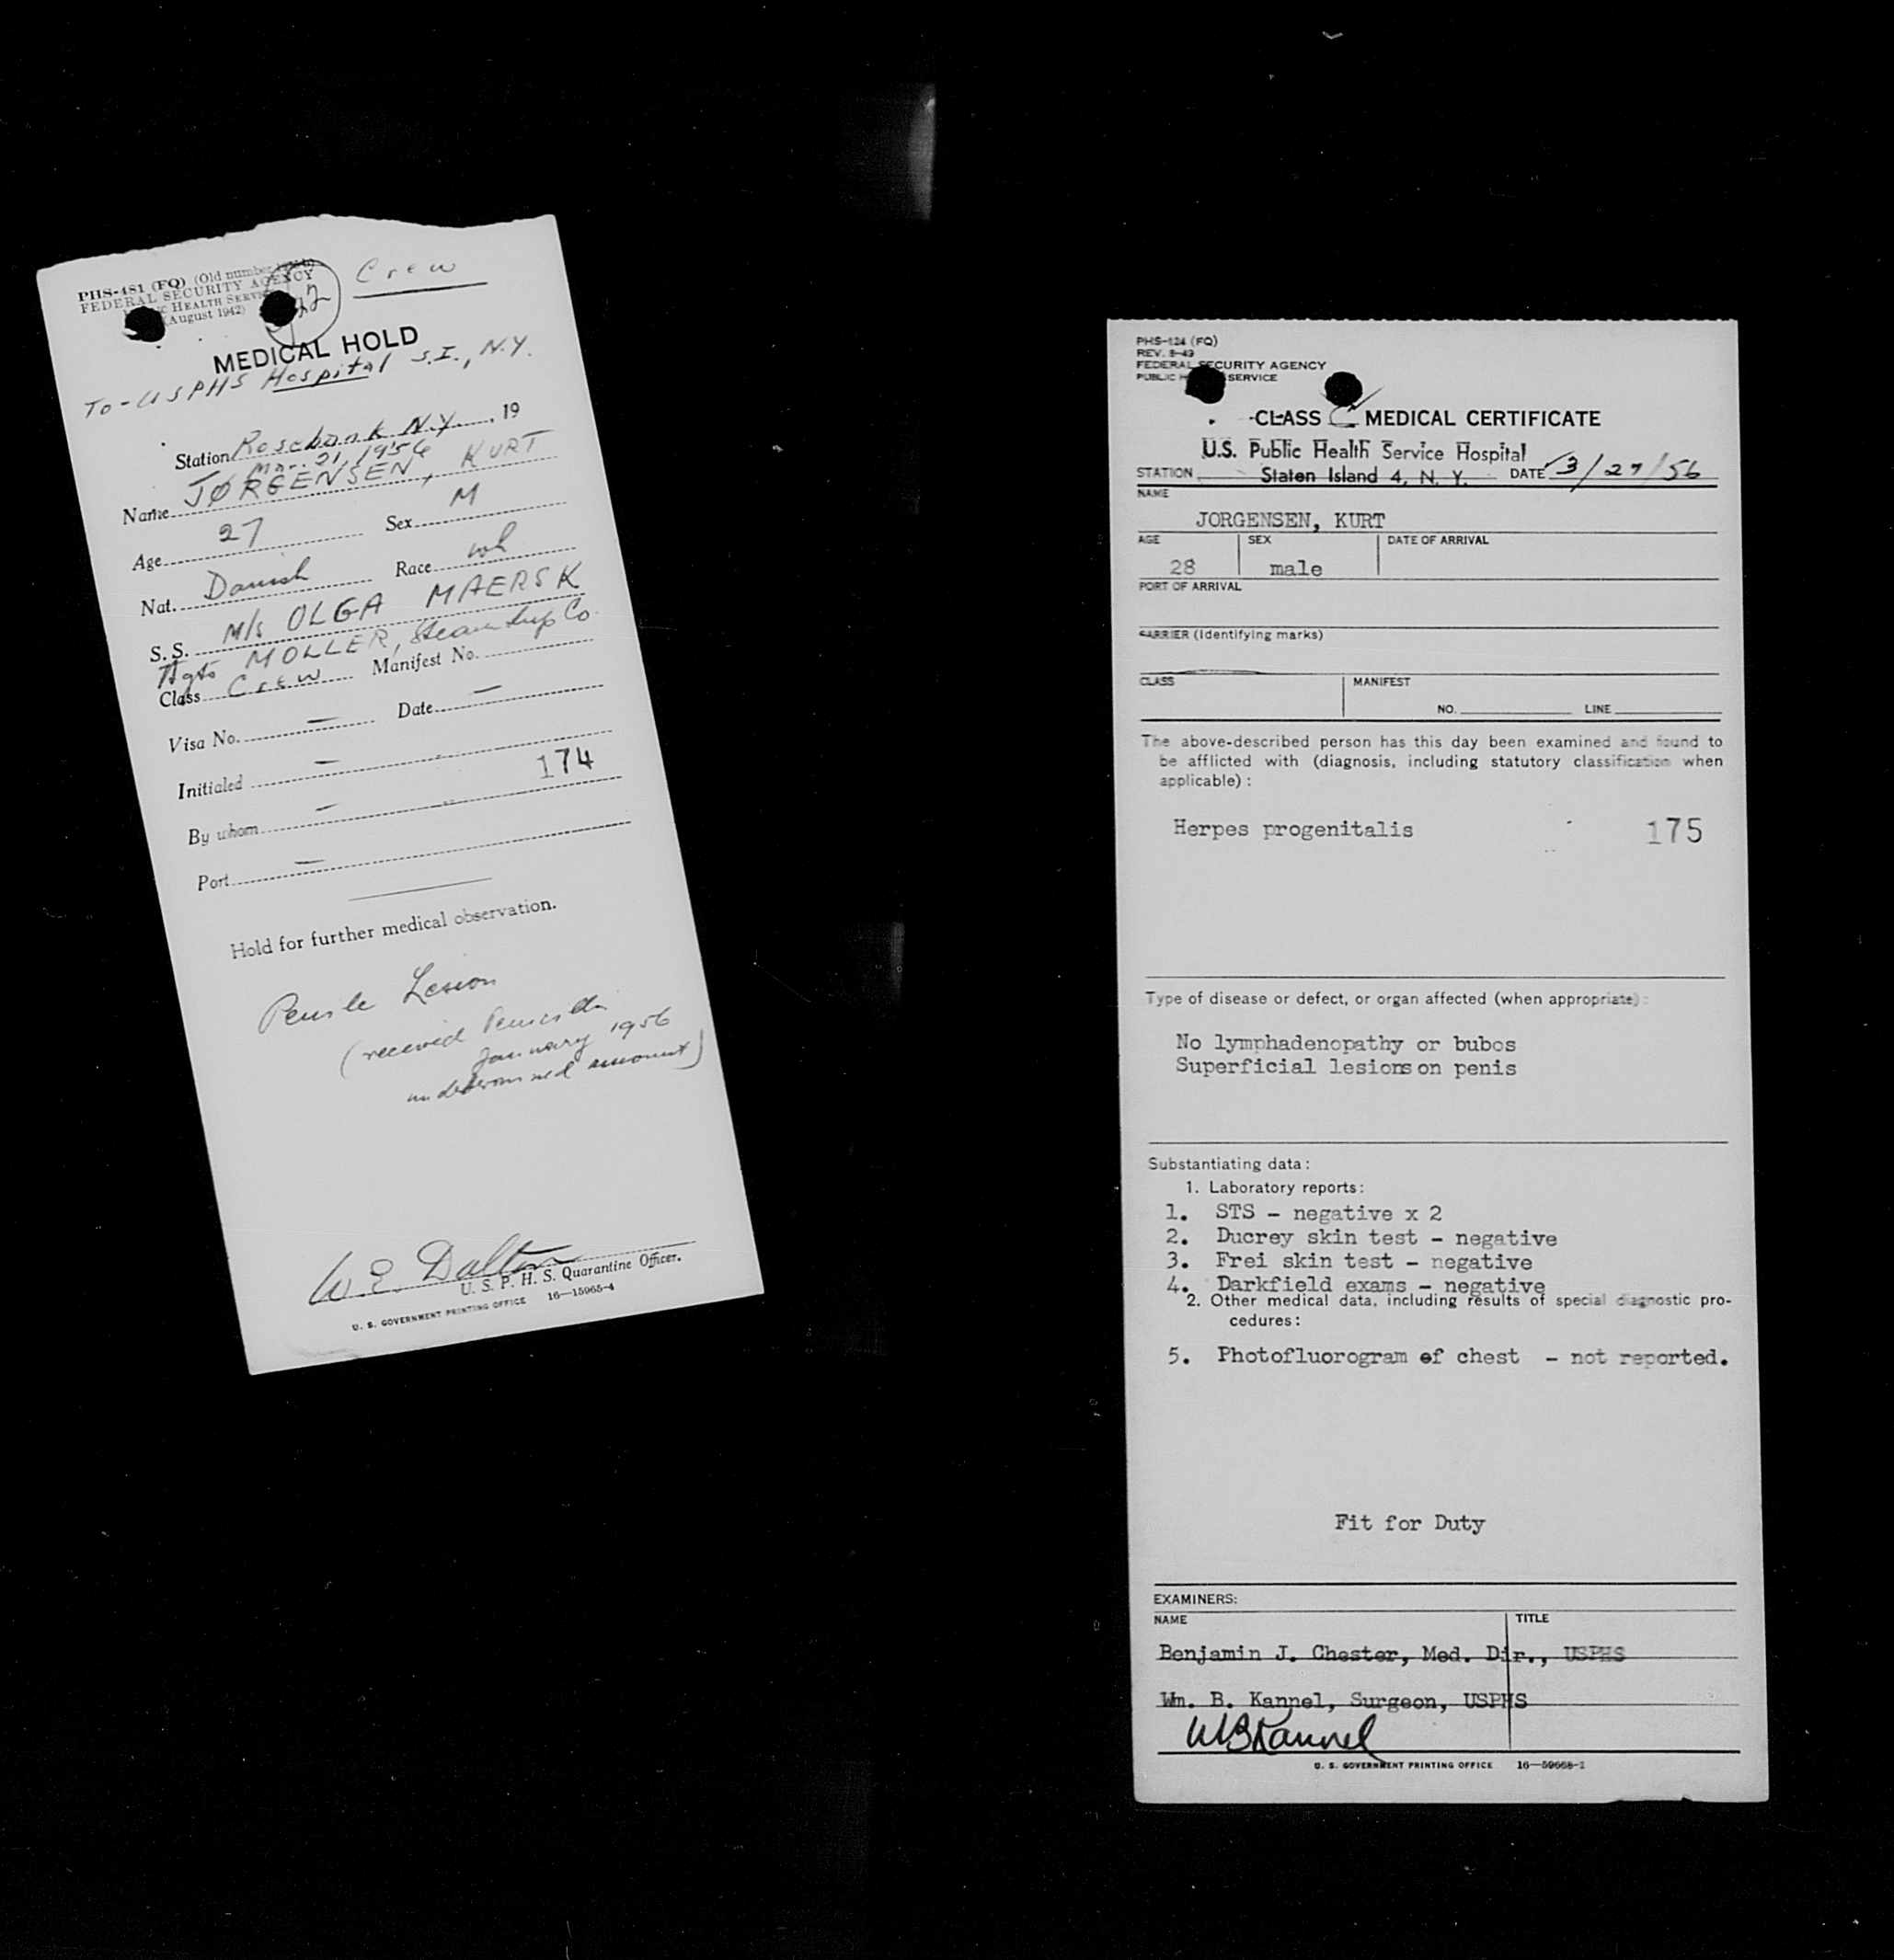 PHS-481 (FQ) (Old number
FEDERAL SECURITY AGENCY
HEALTH SERVICE
(August 1942)
Crew
MEDICAL HOLD
To - USPHS Hospital S.I., N.Y.
Station Rosebank N.Y. , 19
Mar. 21, 1956
Name JØRGENSEN, KURT
Age 27 Sex M
Nat. Danish Race wh
S. S. M/s OLGA MAERSK
Agts MOLLER, Steamship Co.
Class Crew Manifest No.
Visa No. — Date —
Initialed —
174
By whom —
Port —
Hold for further medical observation.
Penile Lesion
(received Penicillin
January 1956
undetermined amount)
W. E. Dalton
U. S. P. H. S. Quarantine Officer.
U. S. GOVERNMENT PRINTING OFFICE 16—15965-4
PHS-124 (FQ)
REV. 8-49
FEDERAL SECURITY AGENCY
PUBLIC H SERVICE
CLASS C MEDICAL CERTIFICATE
U.S. Public Health Service Hospital
STATION Staten Island 4, N. Y. DATE 3/27/56
NAME
JORGENSEN, KURT
AGE SEX DATE OF ARRIVAL
28 male
PORT OF ARRIVAL
CARRIER (Identifying marks)
CLASS MANIFEST
NO. LINE
The above-described person has this day been examined and found to
be afflicted with (diagnosis, including statutory classification when
applicable) :
Herpes progenitalis 175
Type of disease or defect, or organ affected (when appropriate) :
No lymphadenopathy or bubos
Superficial lesions on penis
Substantiating data :
1. Laboratory reports :
1. STS - negative x 2
2. Ducrey skin test - negative
3. Frei skin test - negative
4. Darkfield exams - negative
2. Other medical data, including results of special diagnostic pro-
cedures :
5. Photofluorogram of chest - not reported.
Fit for Duty
EXAMINERS:
NAME TITLE
Benjamin J. Chester, Med. Dir., USPHS
Wm. B. Kannel, Surgeon, USPHS
WB Kannel
U. S. GOVERNMENT PRINTING OFFICE 16—59668-1